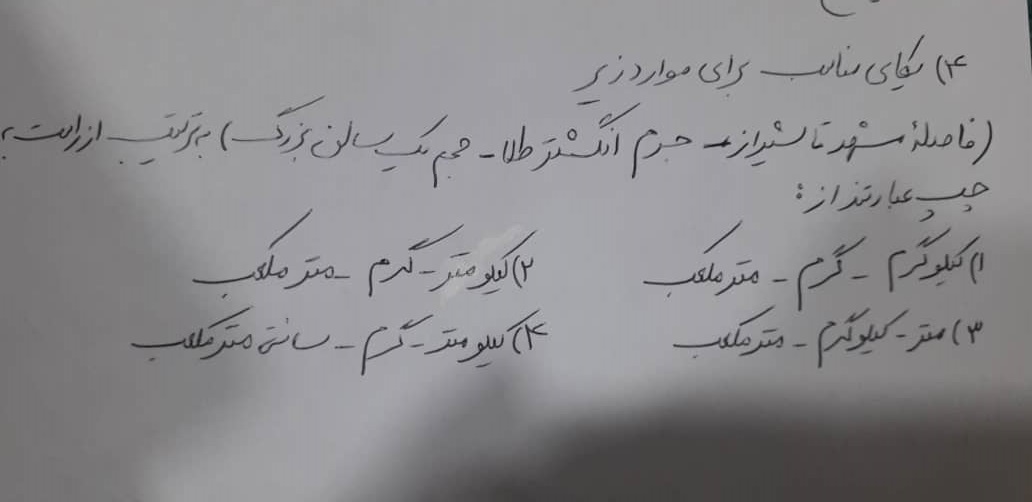 ۴) یکای مناسب برای موارد زیر
(فاصلهٔ مشهد تا شیراز - جرم انگشتر طلا - حجم یک سالن بزرگ) به ترتیب از راست به
چپ عبارتند از:
۱) کیلوگرم - گرم - متر مکعب ۲) کیلومتر - گرم - متر مکعب
۳) متر - کیلوگرم - متر مکعب ۴) کیلومتر - گرم - سانتی متر مکعب